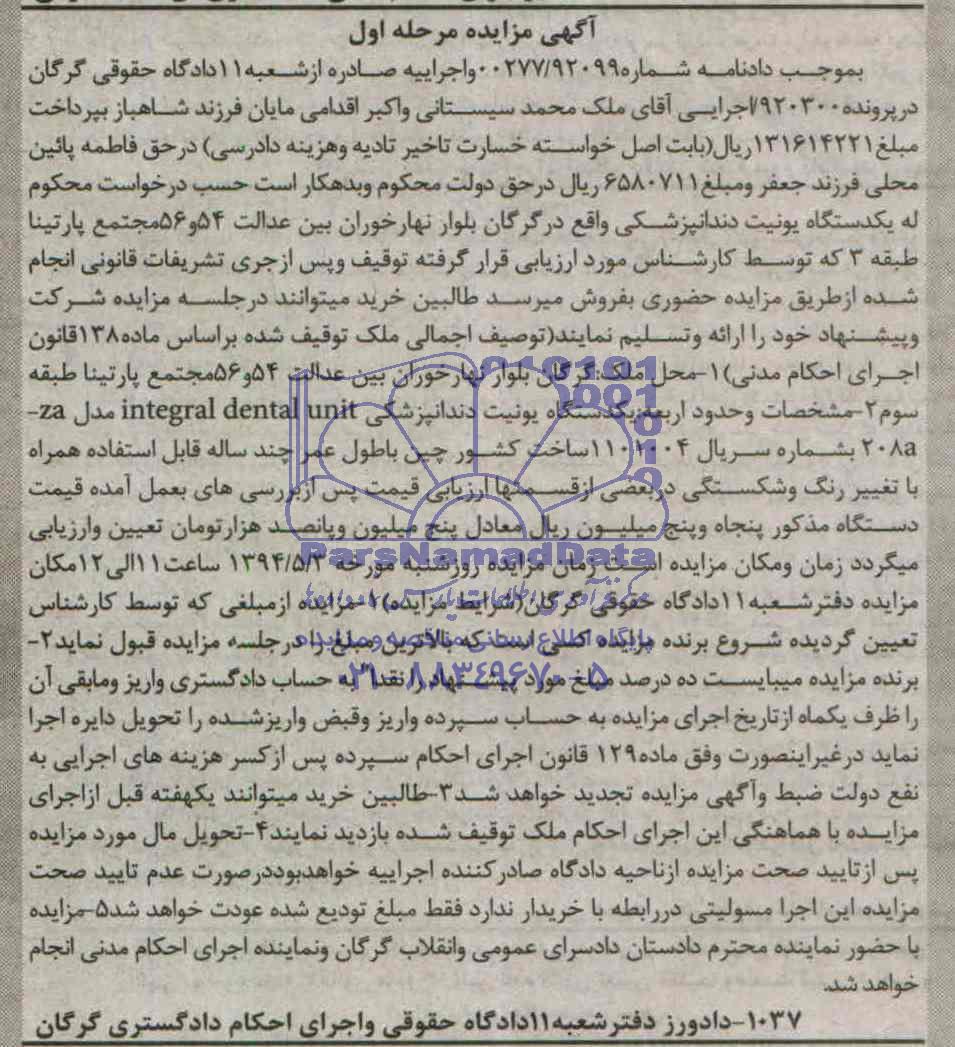 آگهی مزایده مرحله اول
بموجب دادنامه شماره۰۰۲۷۷/۹۲۰۹۹واجراییه صادره ازشعبه۱۱دادگاه حقوقی گرگان
درپرونده۹۲۰۳۰۰/اجرایی آقای ملک محمد سیستانی واکبر اقدامی مایان فرزند شاهباز بپرداخت
مبلغ۱۳۱۶۱۴۲۲۱ریال(بابت اصل خواسته خسارت تاخیر تادیه وهزینه دادرسی) درحق فاطمه پائین
محلی فرزند جعفر ومبلغ۶۵۸۰۷۱۱ ریال درحق دولت محکوم وبدهکار است حسب درخواست محکوم
له یکدستگاه یونیت دندانپزشکی واقع درگرگان بلوار نهارخوران بین عدالت ۵۴و۵۶مجتمع پارتینا
طبقه ۳ که توسط کارشناس مورد ارزیابی قرار گرفته توقیف وپس ازجری تشریفات قانونی انجام
شده ازطریق مزایده حضوری بفروش میرسد طالبین خرید میتوانند درجلسه مزایده شرکت
وپیشنهاد خود را ارائه وتسلیم نمایند(توصیف اجمالی ملک توقیف شده براساس ماده۱۳۸قانون
اجرای احکام مدنی)۱-محل ملک:گرگان بلوار نهارخوران بین عدالت ۵۴و۵۶مجتمع پارتینا طبقه
سوم۲-مشخصات وحدود اربعه:یکدستگاه یونیت دندانپزشکی integral dental unit مدل za-
۲۰۸a بشماره سریال ۱۱۰۱۰۰۴ساخت کشور چین باطول عمر چند ساله قابل استفاده همراه
با تغییر رنگ وشکستگی دربعضی ازقسمتها ارزیابی قیمت پس ازبررسی های بعمل آمده قیمت
دستگاه مذکور پنجاه وپنج میلیون ریال معادل پنج میلیون وپانصد هزارتومان تعیین وارزیابی
میگردد زمان ومکان مزایده است زمان مزایده روزشنبه مورخه ۱۳۹۴/۵/۳ ساعت۱۱الی۱۲مکان
مزایده دفترشعبه۱۱دادگاه حقوقی گرگان(شرایط مزایده)۱-مزایده ازمبلغی که توسط کارشناس
تعیین گردیده شروع برنده مزایده کسی است که بالاترین مبلغ را درجلسه مزایده قبول نماید۲-
برنده مزایده میبایست ده درصد مبلغ مورد پیشنهاد را نقدا به حساب دادگستری واریز ومابقی آن
را ظرف یکماه ازتاریخ اجرای مزایده به حساب سپرده واریز وقبض واریزشده را تحویل دایره اجرا
نماید درغیراینصورت وفق ماده۱۲۹ قانون اجرای احکام سپرده پس ازکسر هزینه های اجرایی به
نفع دولت ضبط وآگهی مزایده تجدید خواهد شد۳-طالبین خرید میتوانند یکهفته قبل ازاجرای
مزایده با هماهنگی این اجرای احکام ملک توقیف شده بازدید نمایند۴-تحویل مال مورد مزایده
پس ازتایید صحت مزایده ازناحیه دادگاه صادرکننده اجراییه خواهدبوددرصورت عدم تایید صحت
مزایده این اجرا مسولیتی دررابطه با خریدار ندارد فقط مبلغ تودیع شده عودت خواهد شد۵-مزایده
با حضور نماینده محترم دادستان دادسرای عمومی وانقلاب گرگان ونماینده اجرای احکام مدنی انجام
خواهد شد.
۱۰۳۷-دادورز دفترشعبه۱۱دادگاه حقوقی واجرای احکام دادگستری گرگان
ParsNamadData
پایگاه اطلاع رسانی مناقصه و مزایده
۰۲۱-۸۸۳۴۹۶۷۰-۵